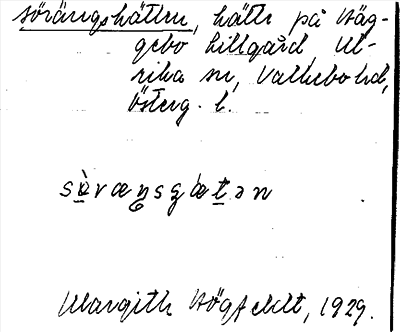 sörängshätten, hätte på Häg-
gebo lillgård, Ul-
rika sn, Valkebo hd,
Österg. l.
Margith Högfeldt, 1929.